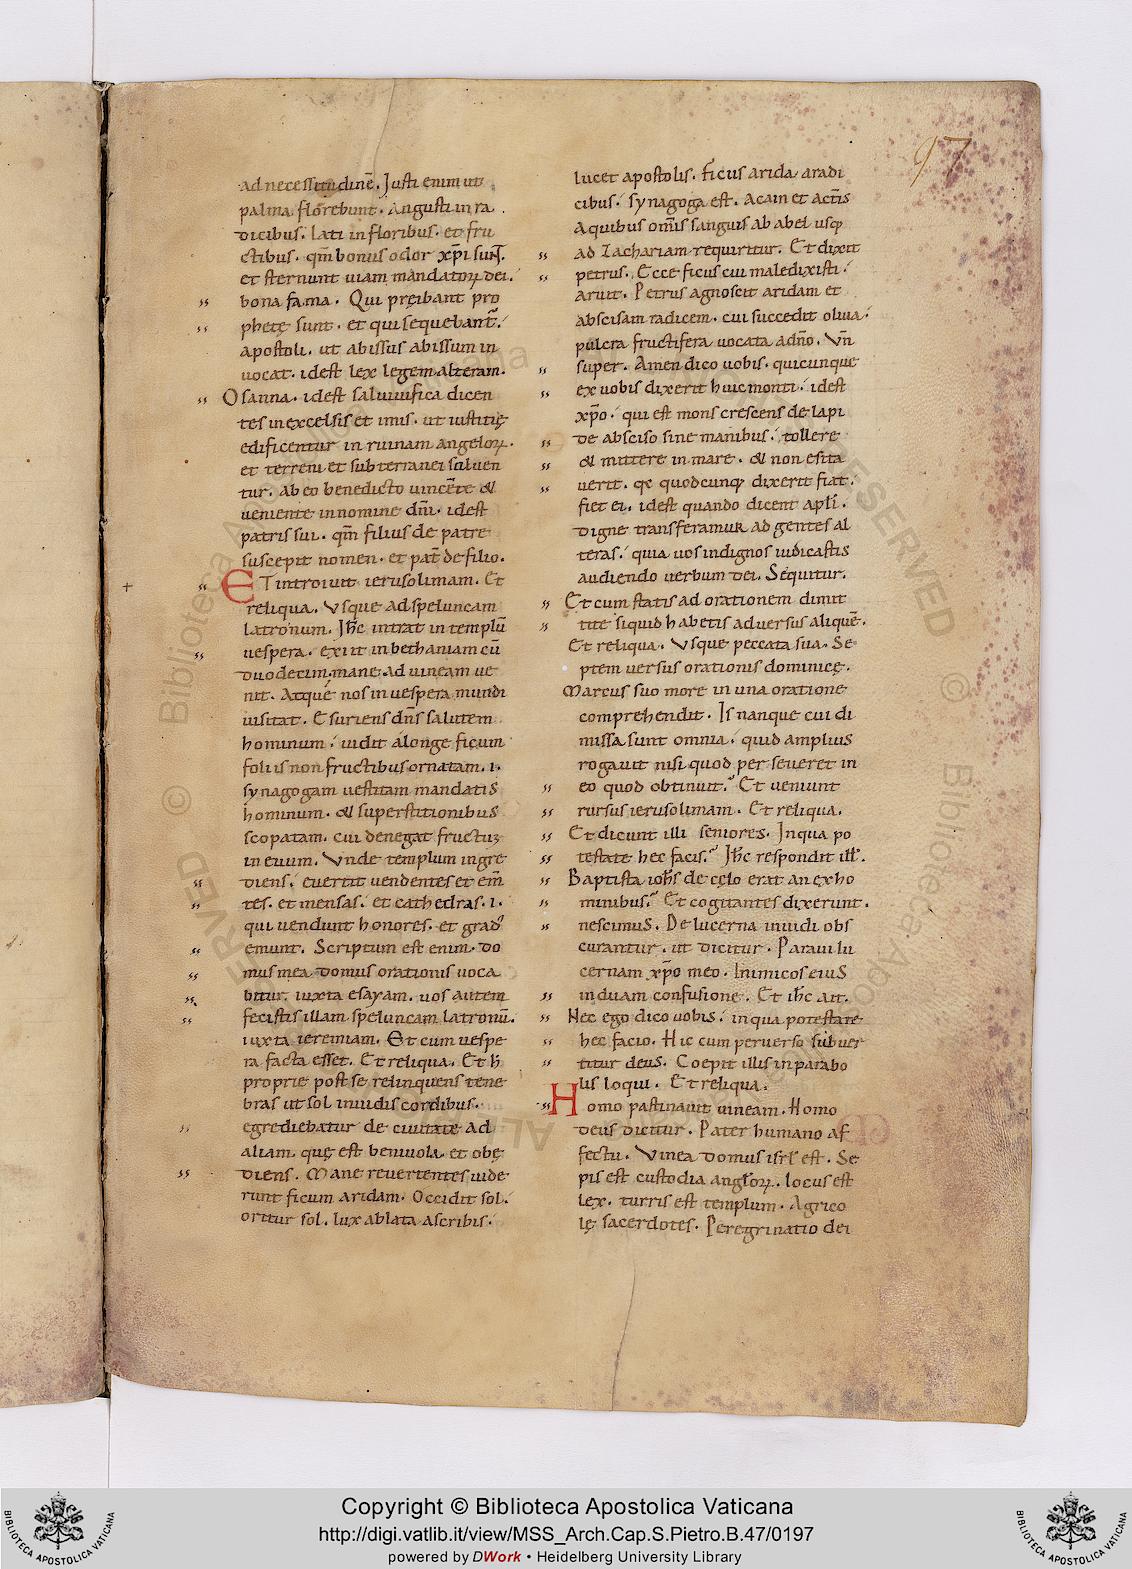 97
ad necessitudinē. Justi enim ut
palma florebunt. Angusti in ra
dicibus. lati in floribus. et fru
ctibus. qm̄ bonus odor xp̄i sunt.
et sternunt uiam mandatoꝝ dei.
bona fama. Qui pręibant pro
phetę sunt. et qui sequebant̄.
apostoli. ut abissus abissum in
uocat. idest lex legem alteram.
Osanna. idest saluiuifica dicen
tes in excelsis et imis. ut iustitię
edificentur in ruinam angeloꝝ.
et terreni et subterranei saluen
tur. ab eo benedicto uincente &
ueniente in nomine dn̄i. idest
patris sui. qm̄ filius de patre
suscepit nomen. et pat̄ de filio.
ET introiuit ierusolimam. Et
reliqua. Vsque ad speluncam
latronum. Jħc intrat in templū
uespera. exiit in bethaniam cū
duodecim. mane ad uineam ue
nit. Atque nos in uespera mundi
uisitat. Esuriens dn̄s salutem
hominum. uidit alonge ficum
foliis non fructibus ornatam. i.
synagogam uestitam mandatis
hominum. & superstitionibus
scopatam. cui denegat fructuꝫ
in euum. Vnde templum ingre
diens. euertit uendentes et em̄
tes. et mensas. et cathedras. i.
qui uendunt honores. et grad᷒
emunt. Scriptum est enim. do
mus mea domus orationis uoca
bitur. iuxta esayam. uos autem
fecistis illam speluncam latronū.
iuxta ieremiam. Et cum uespe
ra facta esset. Et reliqua. Et ħ
proprie post se relinquens tene
bras ut sol inuidis cordibus.
egrediebatur de ciuitate ad
aliam. quę est beniuola. et obę
diens. Mane reuertentes uide
runt ficum aridam. Occidit sol.
oritur sol. lux ablata ascribis.
lucet apostolis. ficus arida aradi
cibus. synagoga est. acain et actīs
aquibus om̄is sanguis ab abel usqꝫ
ad zachariam requiritur. Et dixit
petrus. Ecce ficus cui maledixisti.
aruit. Petrus agnoscit aridam et
abscisam radicem. cui succedit oliua.
pulcra fructifera uocata adn̄o. Vn̄
super. Amen dico uobis. quicunque
ex uobis dixerit huic monti. idest
xp̄o. qui est mons crescens de lapi
de absciso sine manibus. tollere
& mittere in mare. & non esita
uerit. qꝛ quodcunqꝫ dixerit fiat.
fiet ei. idest quando dicent apl̄i.
digne transferamur ad gentes al
teras. quia uos indignos iudicastis
audiendo uerbum dei. Sequitur.
Et cum statis ad orationem dimit
tite siquid habetis aduersus aliquē.
Et reliqua. Vsque peccata sua. Se
ptem uersus orationis dominicę.
Marcus suo more in una oratione
comprehendit. Is nanque cui di
missa sunt omnia. quid amplius
rogauit nisi quod perseueret in
eo quod obtinuit. Et ueniunt
rursus ierusolimam. Et reliqua.
Et dicunt illi seniores. In qua po
testate hec facis. Jħc respondit ill̄.
Baptista ioħs de cęlo erat an ex ho
minibus. Et cogitantes dixerunt.
nescimus. De lucerna inuidi obs
curantur. ut dicitur. Paraui lu
cernam xp̄o meo. Inimicos eius
induam confusione. Et iħc ait.
Nec ego dico uobis. in qua potestate
hec facio. Hic cum peruerso subuer
titur deus. Coepit illis in parabo
lis loqui. Et reliqua.
Homo pastinauit uineam. Homo
deus dicitur. Pater humano af
fectu. Vinea domus isrl̄ est. Se
pis est custodia angl̄oꝝ. locus est
lex. turris est templum. Agrico
lę sacerdotes. Peregrinatio dei
Copyright © Biblioteca Apostolica Vaticana
http://digi.vatlib.it/view/MSS_Arch.Cap.S.Pietro.B.47/0197
powered by DWork • Heidelberg University Library
BIBLIOTECA APOSTOLICA VATICANA
BIBLIOTECA APOSTOLICA VATICANA